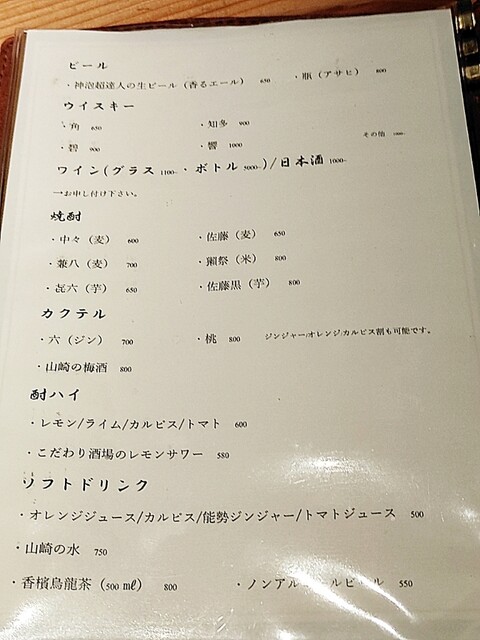 ビール
・神泡超達人の生ビール（香るエール） 650 ・瓶（アサヒ） 800
ウイスキー
・角 650 ・知多 900
・碧 900 ・響 1000 その他
ワイン(グラス 1100~・ボトル 5000~)/日本酒 1000~
→お申し付け下さい。
焼酎
・中々（麦） 600 ・佐藤（麦） 650
・兼八（麦） 700 ・獺祭（米） 800
・㐂六（芋） 650 ・佐藤黒（芋） 800
カクテル
・六（ジン） 700 ・桃 800 ジンジャー/オレンジ/カルピス割も可能です。
・山崎の梅酒 800
酎ハイ
・レモン/ライム/カルピス/トマト 600
・こだわり酒場のレモンサワー 580
ソフトドリンク
・オレンジジュース/カルピス/能勢ジンジャー/トマトジュース 500
・山崎の水 750
・香檳烏龍茶（500 ㎖） 800 ・ノンアルコールビール 550